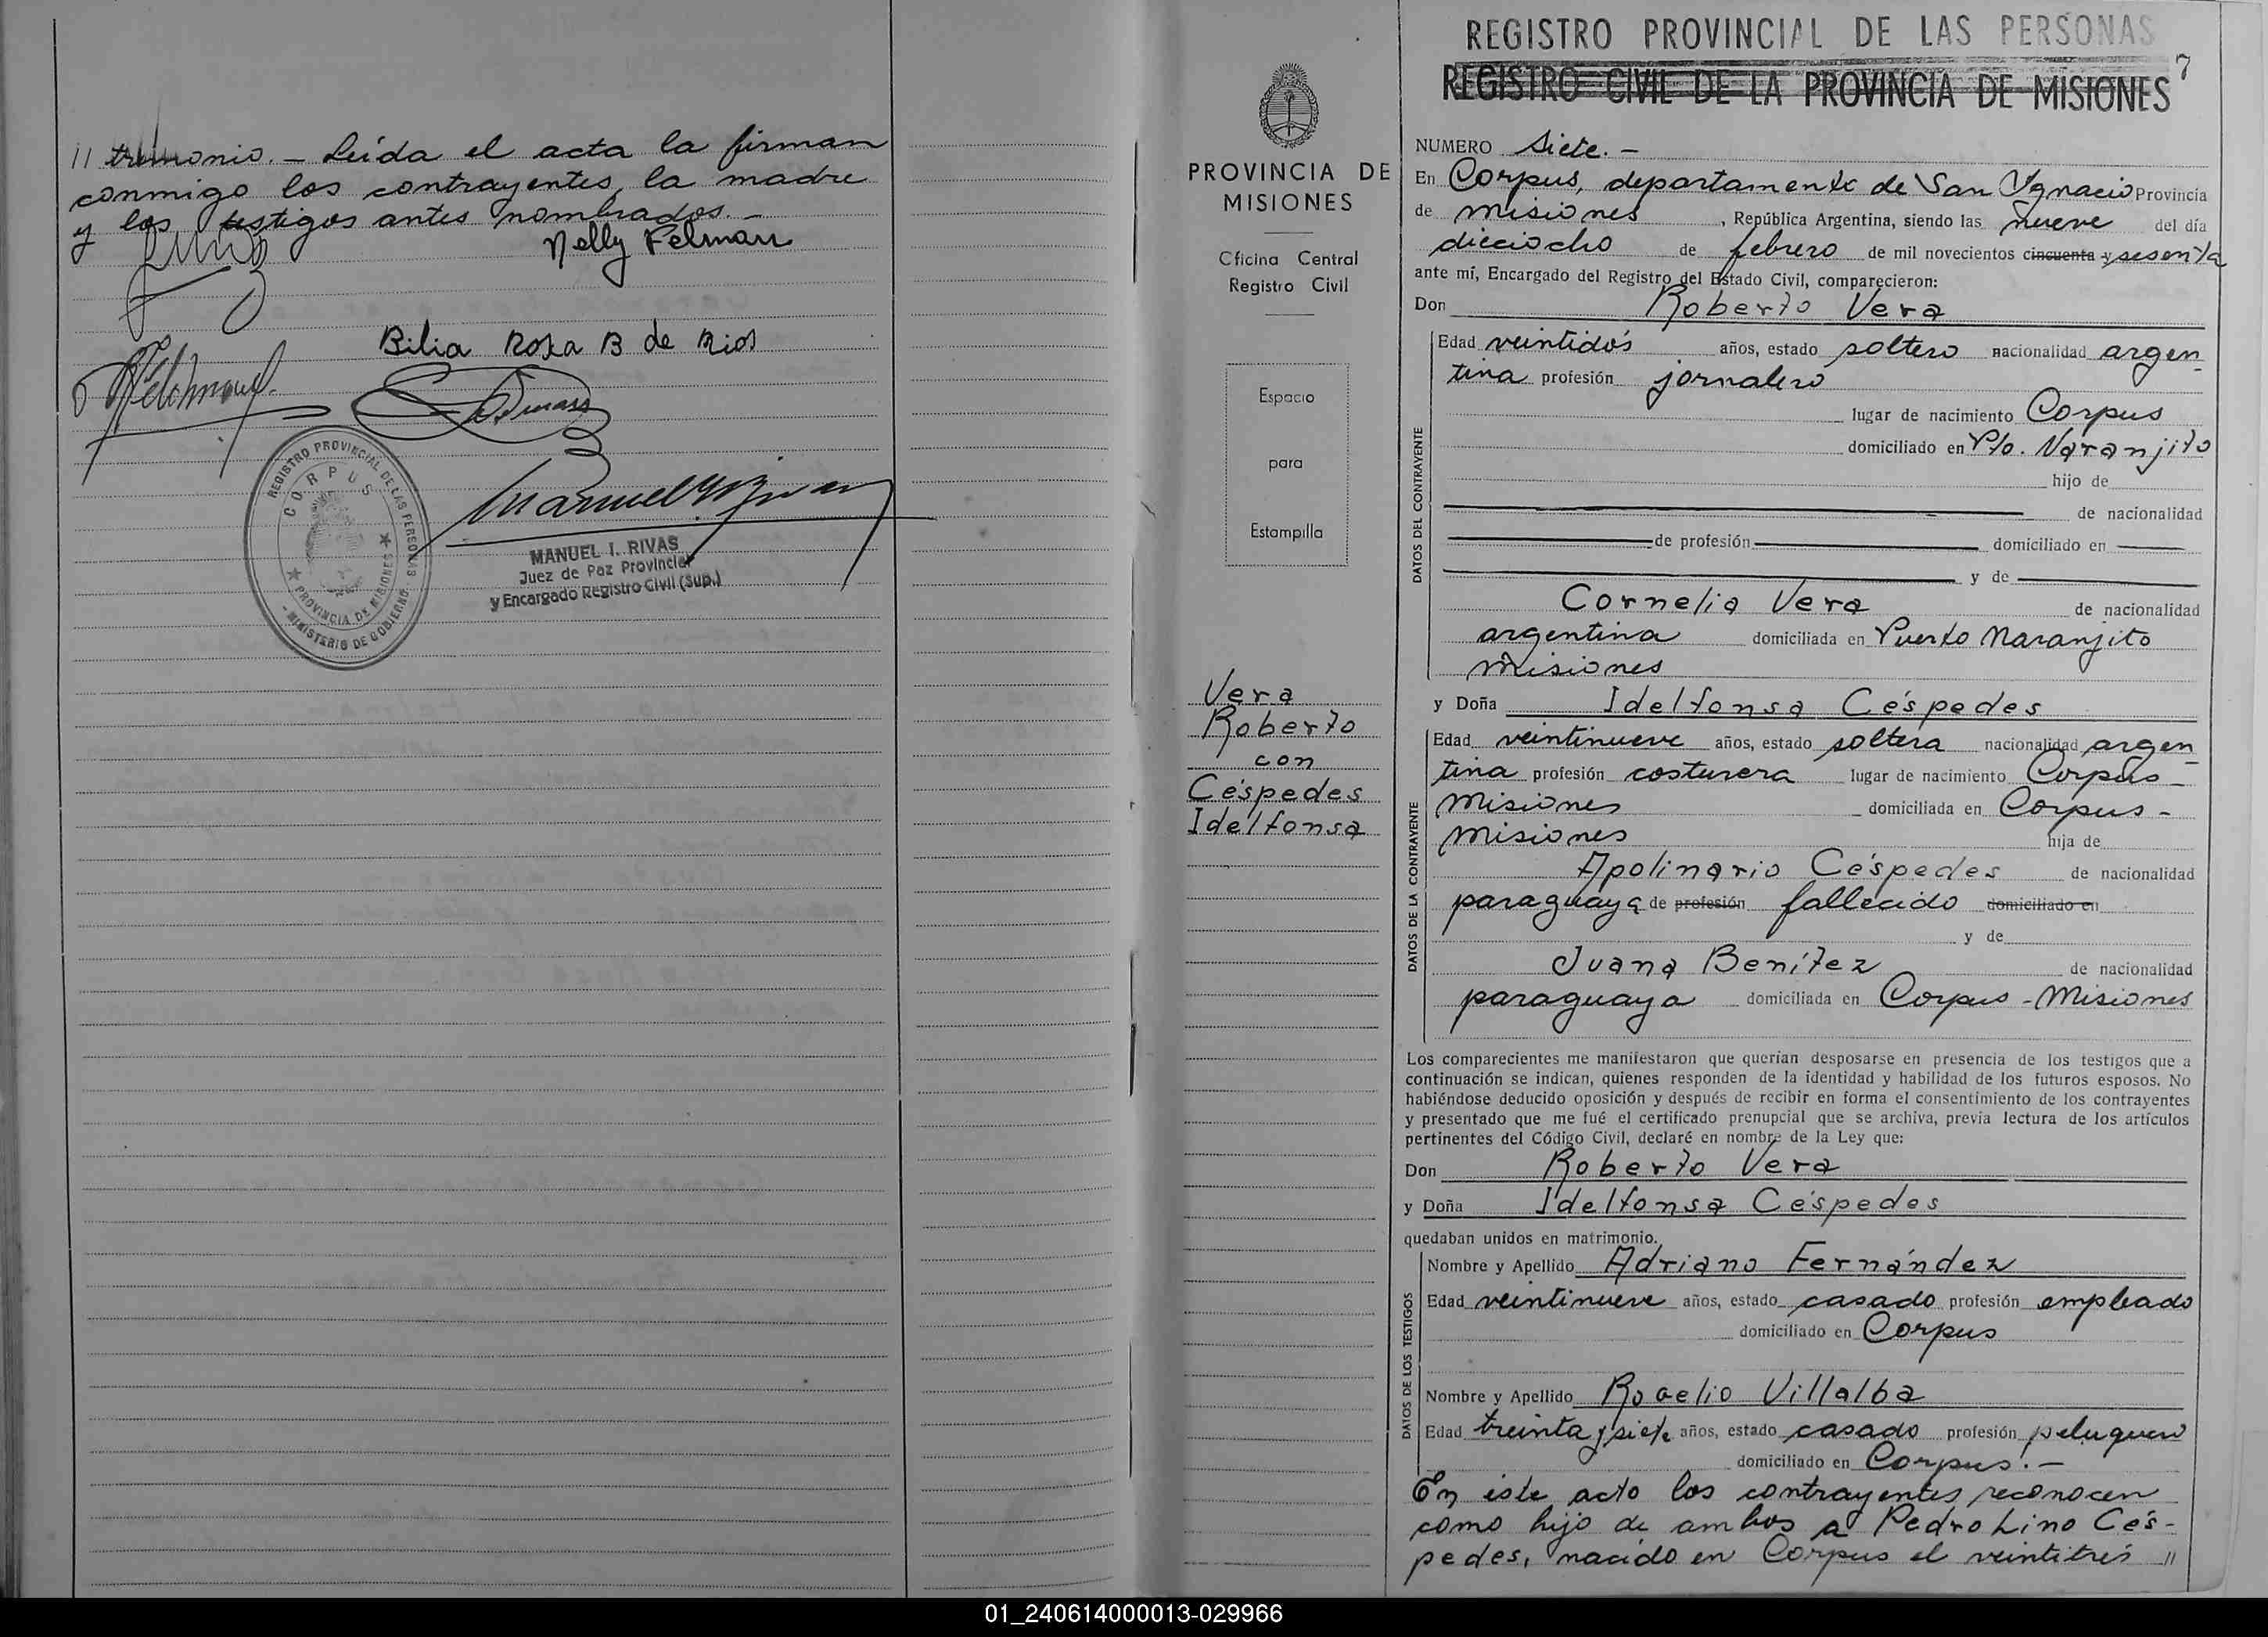 // trimonio. - Leída el acta la firman
conmigo los contrayentes, la madre
y los testigos antes nombrados. -
Nelly Felman
Bilia Rosa B de Rios
REGISTRO PROVINCIAL DE LAS PERSONAS
CORPUS
PROVINCIA DE MISIONES
- MINISTERIO DE GOBIERNO -
MANUEL I. RIVAS
Juez de Paz Provincial
y Encargado Registro Civil (Sup.)
PROVINCIA DE
MISIONES
Oficina Central
Registro Civil
Espacio
para
Estampilla
Vera
Roberto
con
Céspedes
Idelfonsa
REGISTRO PROVINCIAL DE LAS PERSONAS
REGISTRO CIVIL DE LA PROVINCIA DE MISIONES
7
NUMERO Siete. -
En Corpus, departamento de San Ygnacio Provincia
de Misiones, República Argentina, siendo las nueve del día
dieciocho de febrero de mil novecientos cincuenta y sesenta
ante mí, Encargado del Registro del Estado Civil, comparecieron:
Don Roberto Vera
DATOS DEL CONTRAYENTE
Edad veintidós años, estado soltero nacionalidad argen-
tina profesión jornalero
lugar de nacimiento Corpus
domiciliado en Pto. Naranjito
hijo de
de nacionalidad
de profesión domiciliado en
y de
Cornelia Vera de nacionalidad
argentina domiciliada en Puerto Naranjito
Misiones
y Doña Idelfonsa Céspedes
DATOS DE LA CONTRAYENTE
Edad veintinueve años, estado soltera nacionalidad argen-
tina profesión costurera lugar de nacimiento Corpus
Misiones domiciliada en Corpus -
Misiones hija de
Apolinario Céspedes de nacionalidad
paraguaya de profesión fallecido domiciliado en
y de
Juana Benítez de nacionalidad
paraguaya domiciliada en Corpus - Misiones
Los comparecientes me manifestaron que querían desposarse en presencia de los testigos que a
continuación se indican, quienes responden de la identidad y habilidad de los futuros esposos. No
habiéndose deducido oposición y después de recibir en forma el consentimiento de los contrayentes
y presentado que me fué el certificado prenupcial que se archiva, previa lectura de los artículos
pertinentes del Código Civil, declaré en nombre de la Ley que:
Don Roberto Vera
y Doña Idelfonsa Céspedes
quedaban unidos en matrimonio.
DATOS DE LOS TESTIGOS
Nombre y Apellido Adriano Fernández
Edad veintinueve años, estado casado profesión empleado
domiciliado en Corpus
Nombre y Apellido Rogelio Villalba
Edad treinta y siete años, estado casado profesión peluquero
domiciliado en Corpus. -
En éste acto los contrayentes reconocen
como hijo de ambos a Pedro Lino Cés-
pedes, nacido en Corpus el veintitrés //
01_240614000013-029966